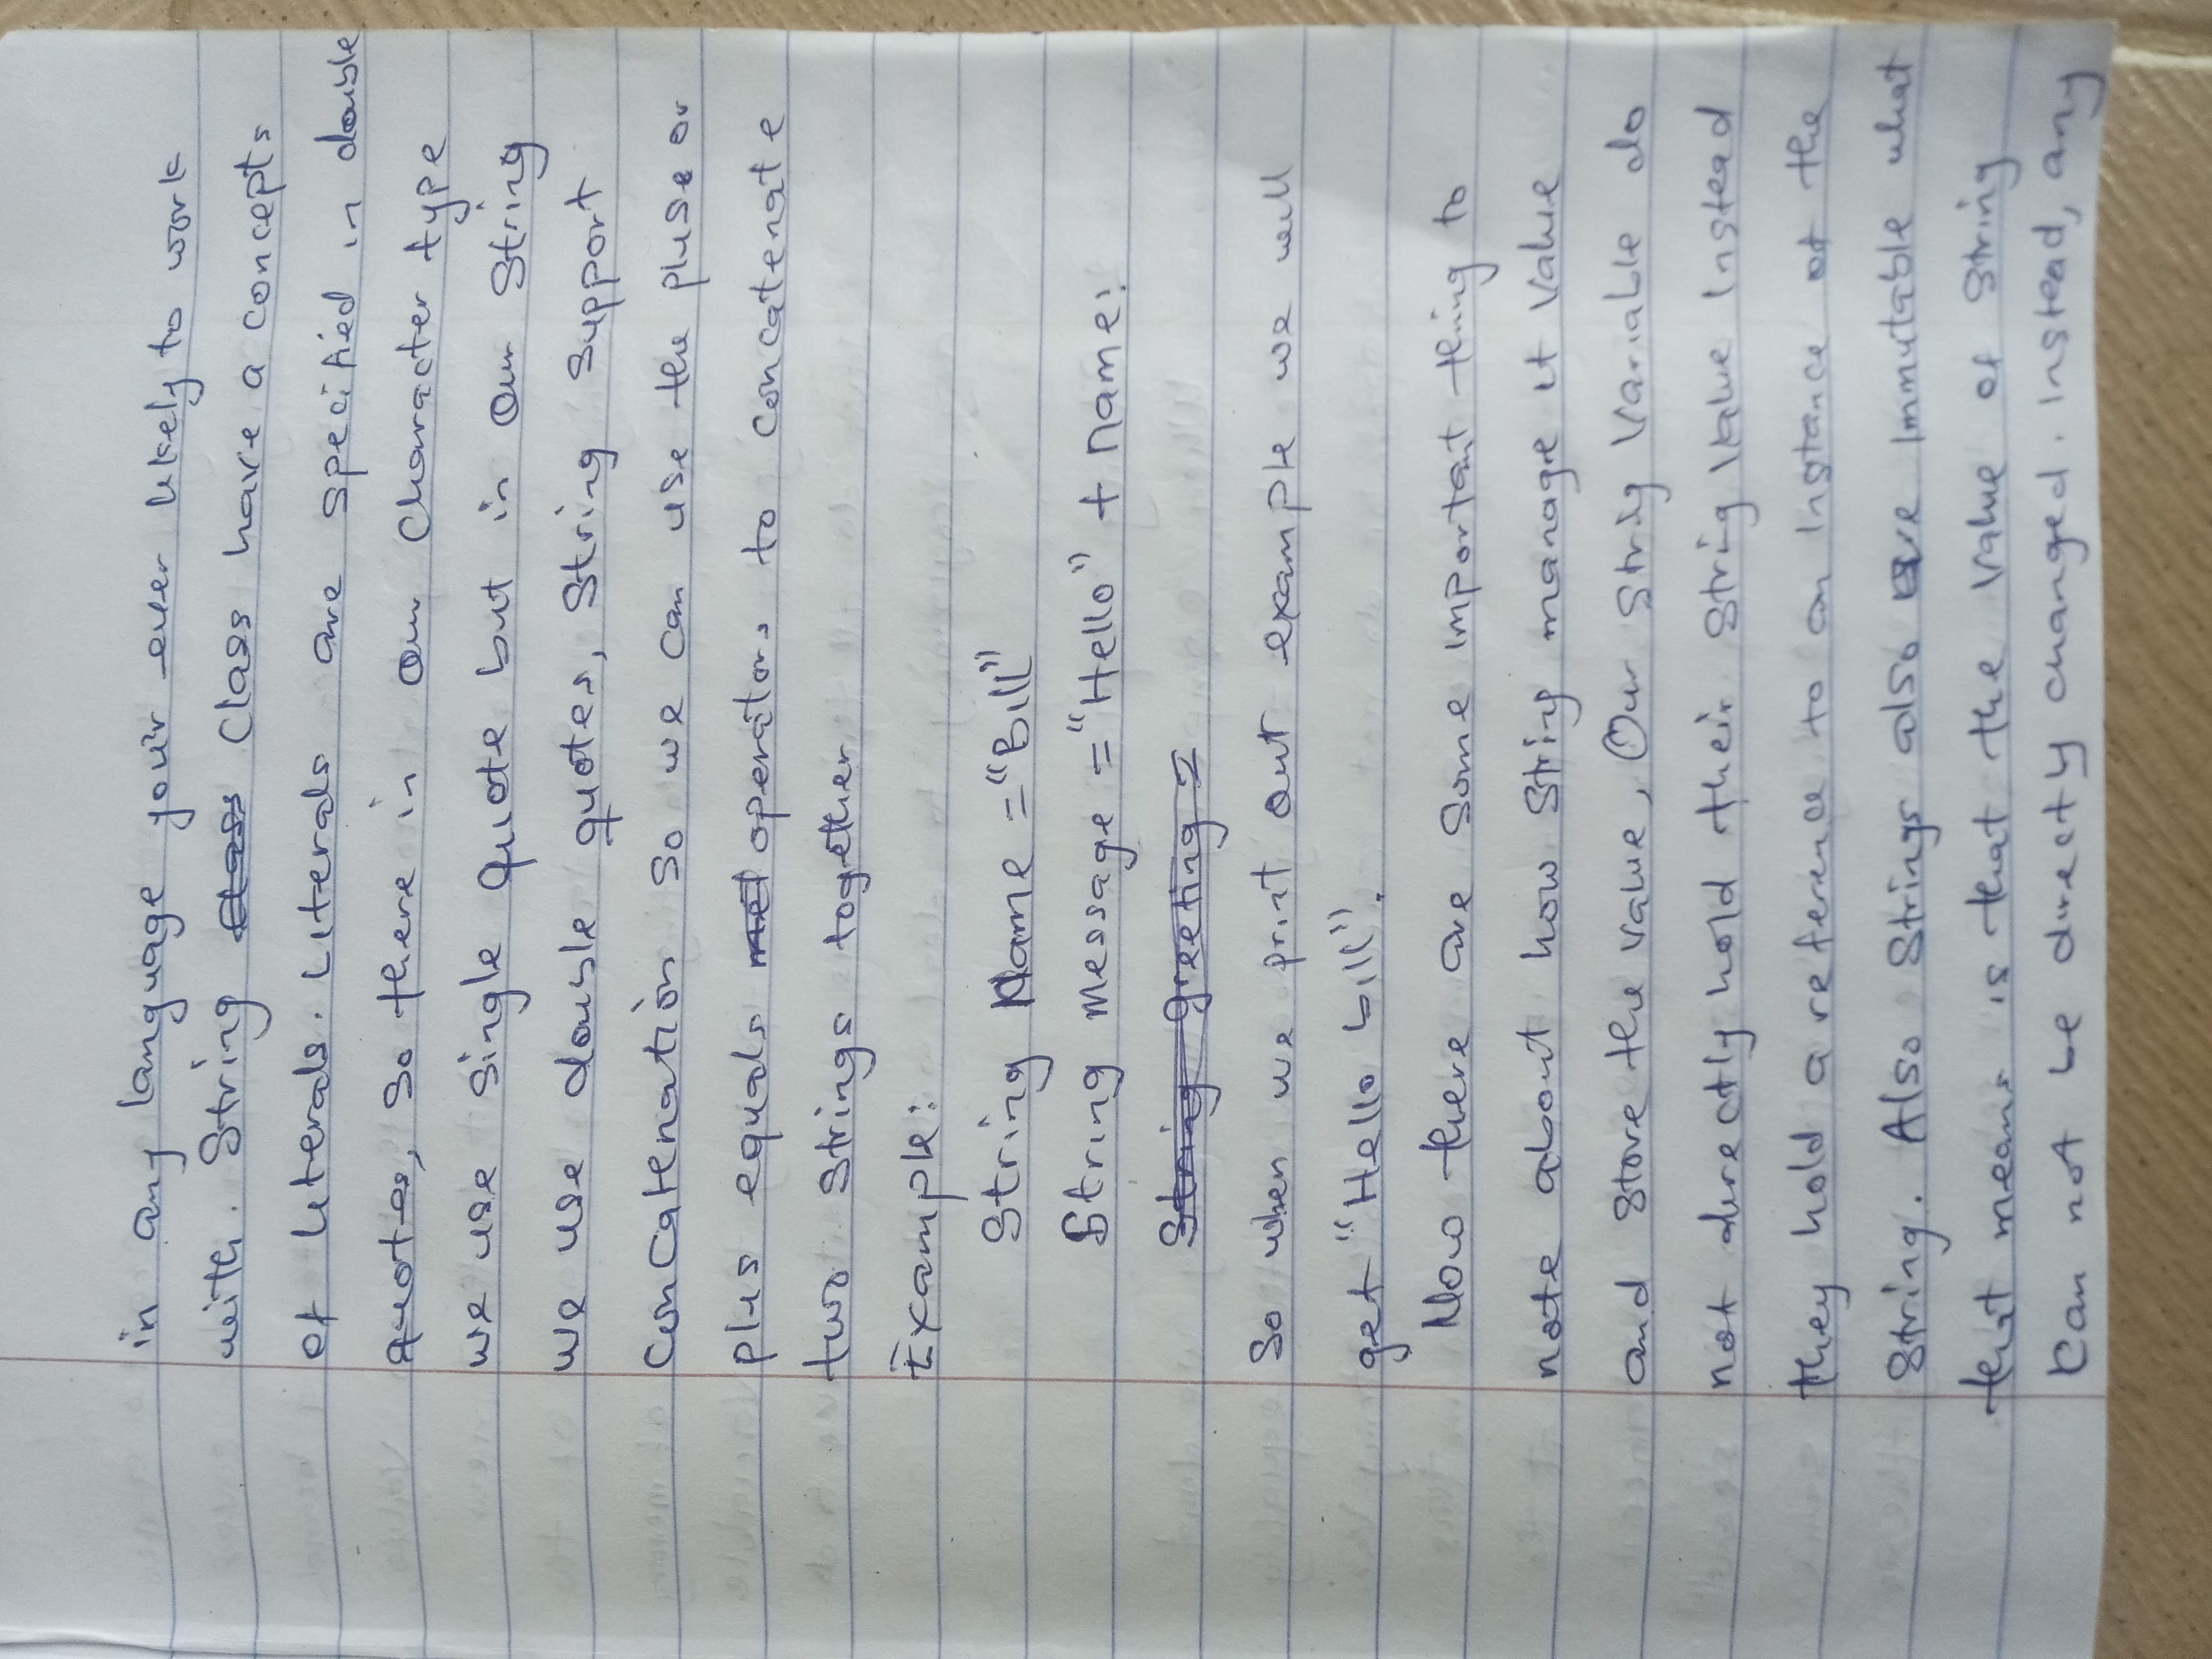 in any language your ever likely to work
with. String class Class have a concepts
of literals. Literals are specified in double
quotes, So there in Our Character type
we use single Quote but in Our String
we use double quotes, String support
Concatenation So we can use the pluse or
plus equals operators to concatenate
two Strings together
Example:
String Name = "Bill"
String message = "Hello" + name;
String greeting =
So when we print Out example we will
get "Hello bill".
Now there are Some important thing to
note about how String manage it Value
and Store the value, Our Strig Variable do
not directly hold their String Value Instead
they hold a reference to an Instance of the
String. Also Strings also are Immutable what
that means is that the Value of String
Can not be directy changed. Instead, any